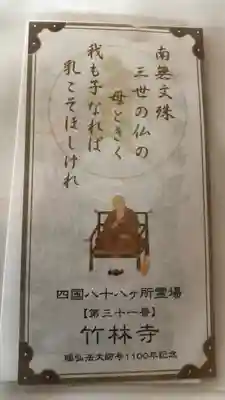 南無文殊
三世の仏の
母ときく
我も子なれば
乳こそほしけれ
四国八十八ヶ所霊場
【第三十一番】
竹林寺
賜弘法大師号1100年記念